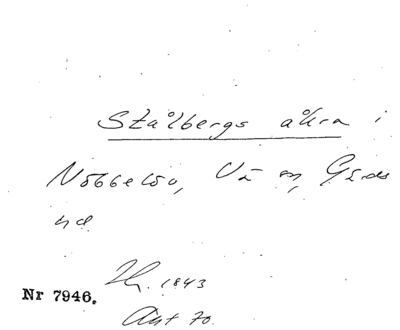 Stålbergs åkra i
Nöbbelöv, Vä sn, Gärds
hd
Nr 7946. 1843
Akt 70